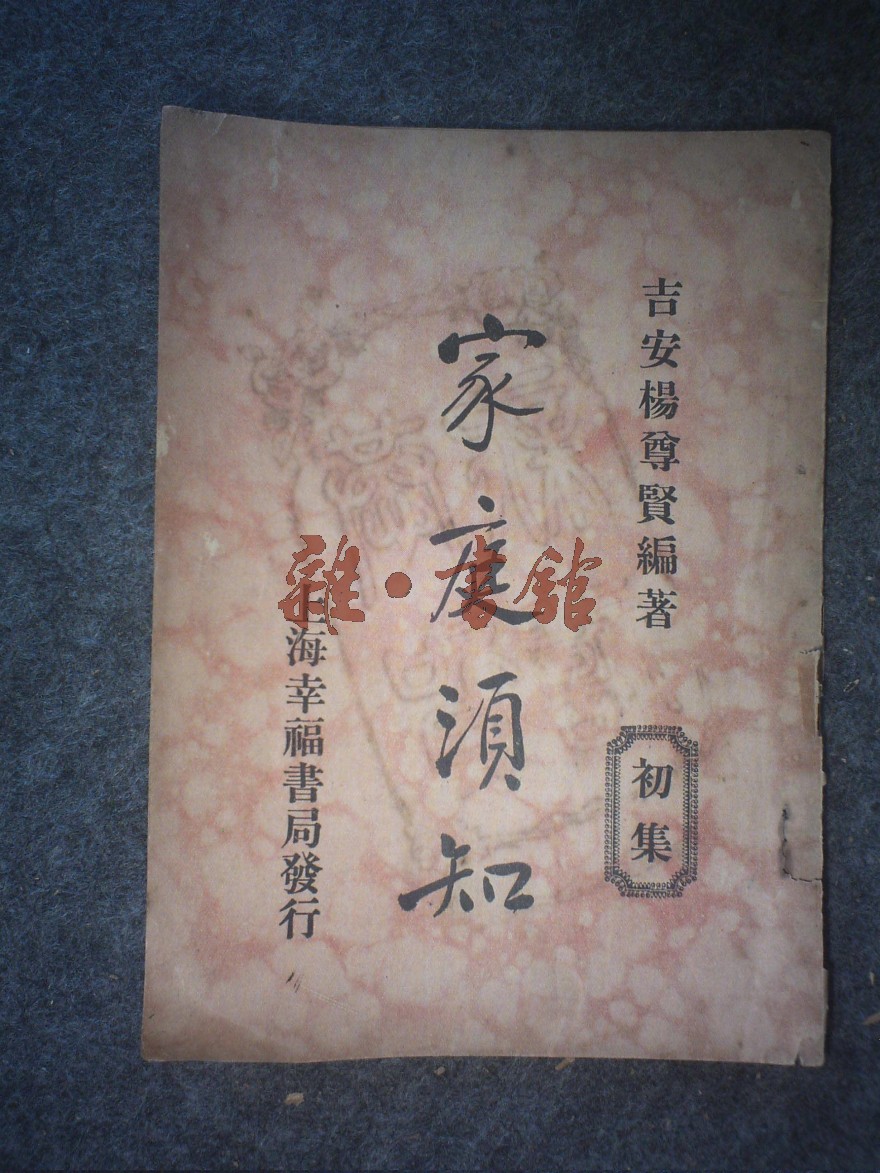 吉安楊尊賢編著
初集
家庭須知
上海幸福書局發行
雜·書館